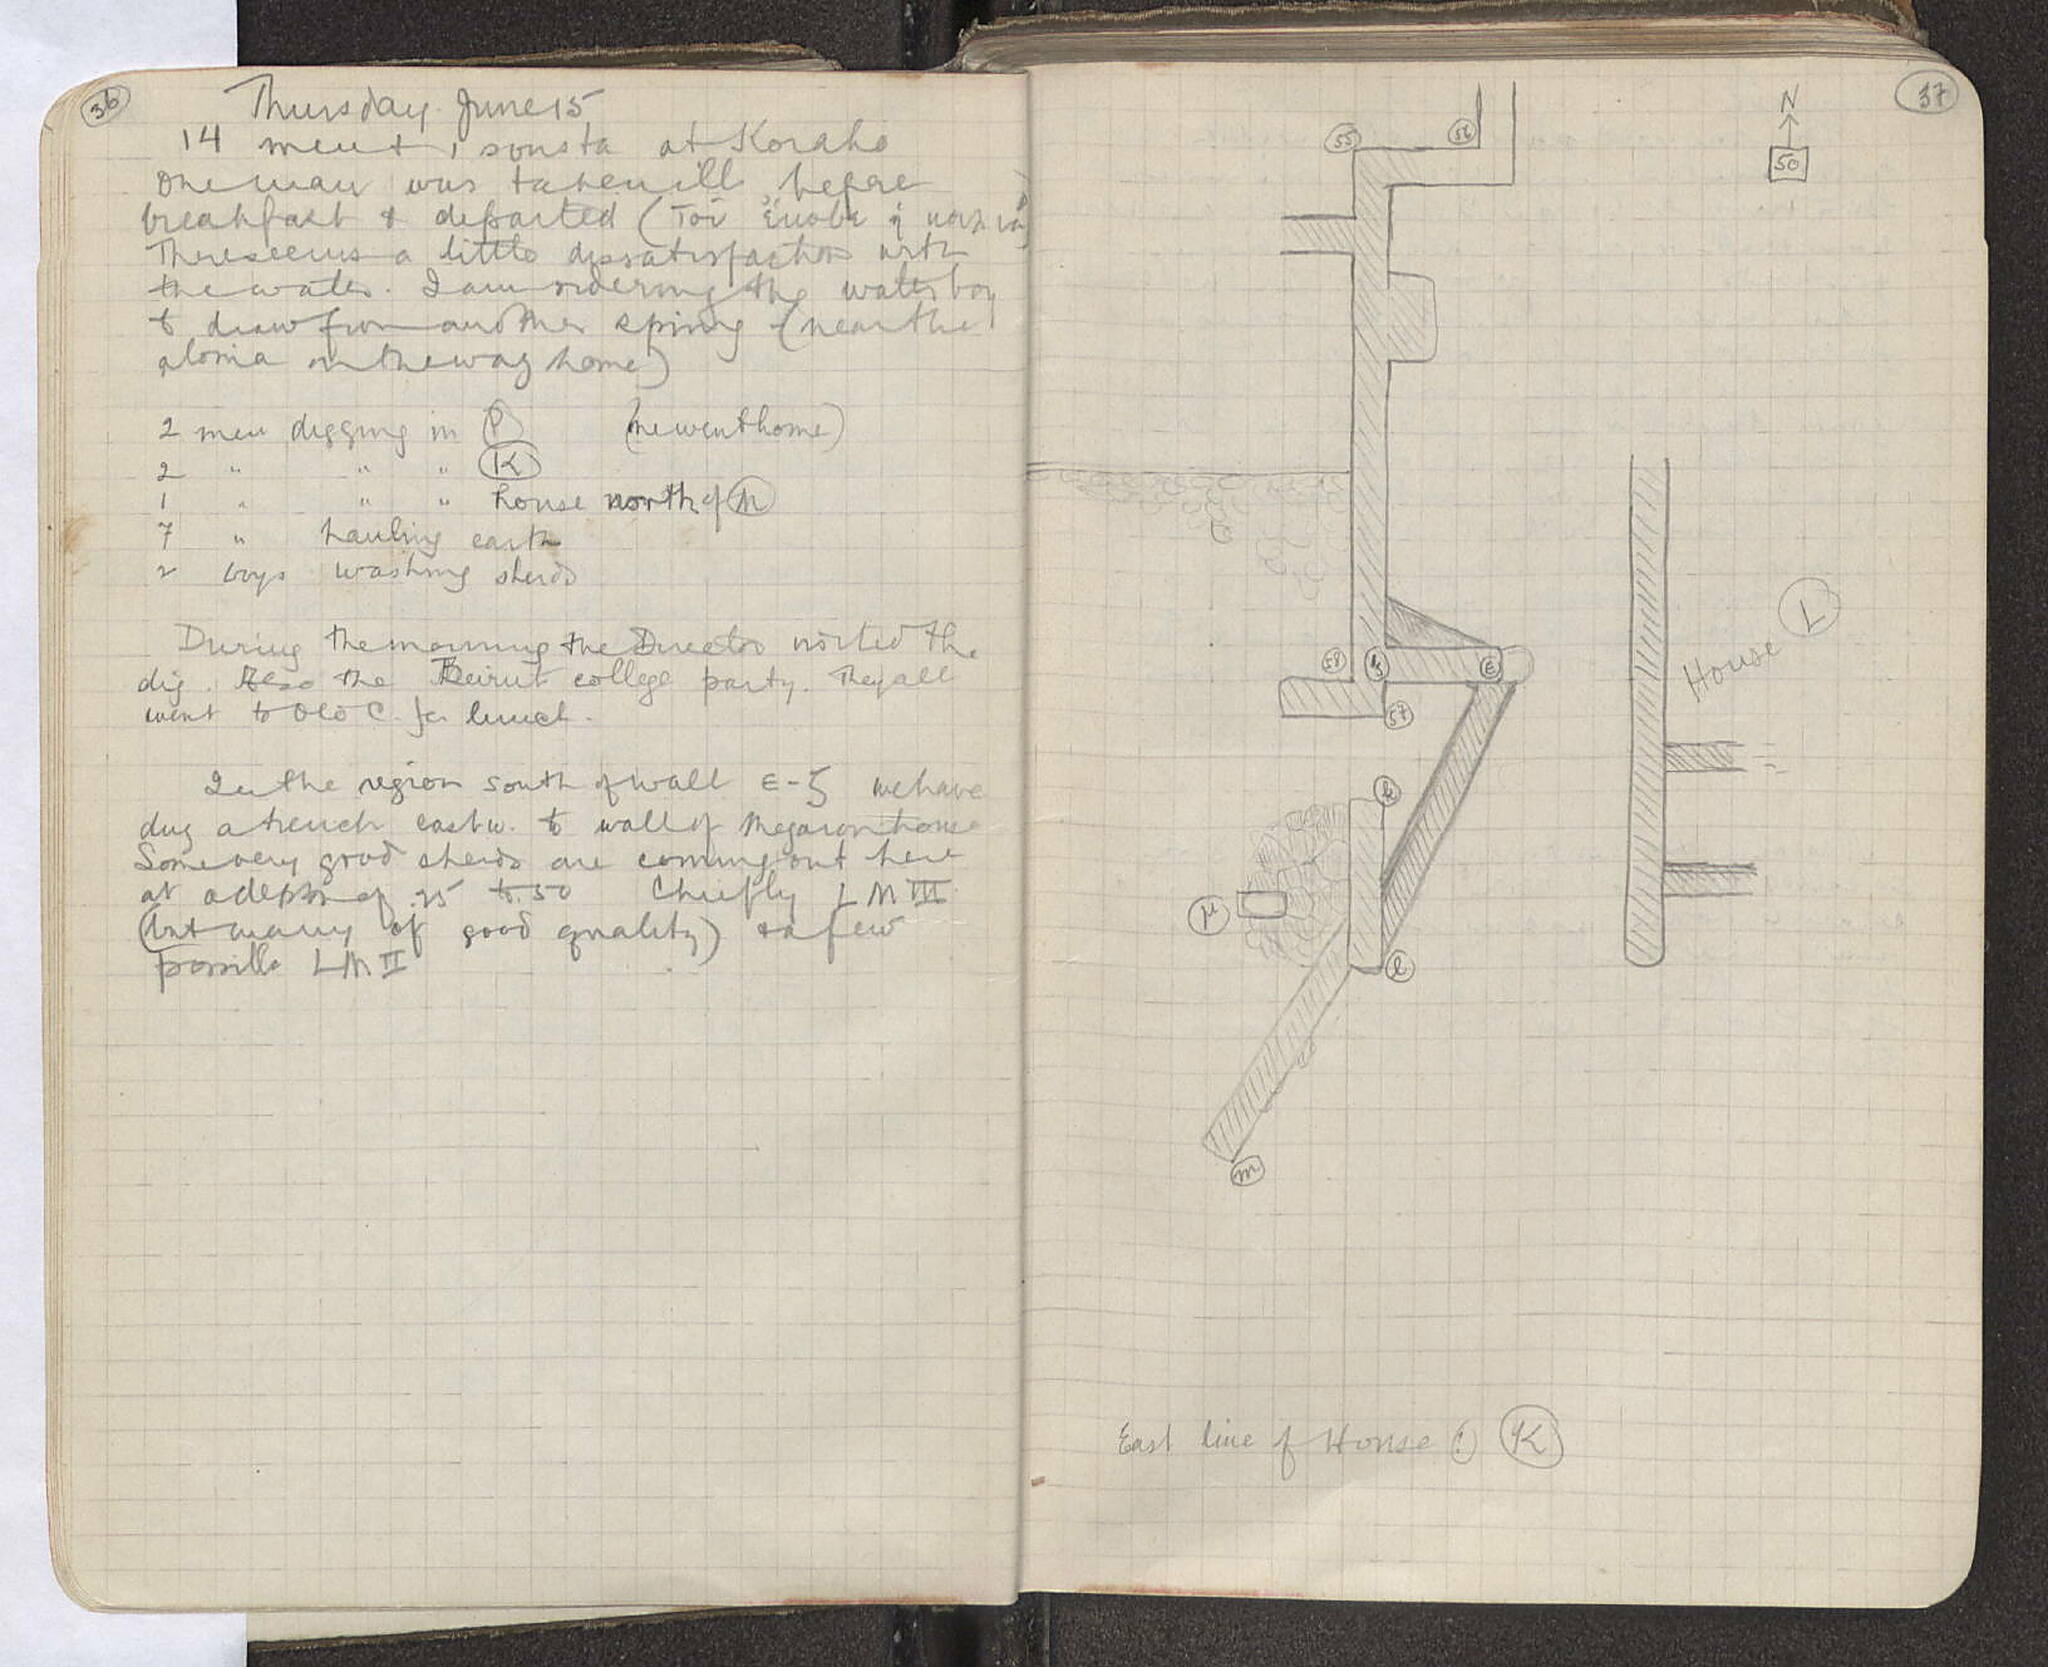 36
Thursday. June 15
14 men + 1 sousta at Korako
One man was taken ill before
breakfast & departed (Τοῦ ἔκοβε ἡ
There seems a little dissatisfaction with
the water. I am ordering the water boy
to draw from another spring (near the
alonia on the way home)
2 men digging in P (one went home)
2 " " " K
1 " " " house north of M
7 " hauling earth
2 boys washing sherds
During the morning the Director visited the
dig. Also the Beirut college party. They all
went to Old C. for lunch.
In the region south of wall ε-ζ we have
dug a trench eastw. to wall of Megaron house
Some very good sherds are coming out here
at a depth of .25 to .50 Chiefly LM III
(but many of good quality) & a few
possible LM II
37
N
50
55
56
House L
58
ζ
ε
57
k
μ
l
m
East line of House (?) K